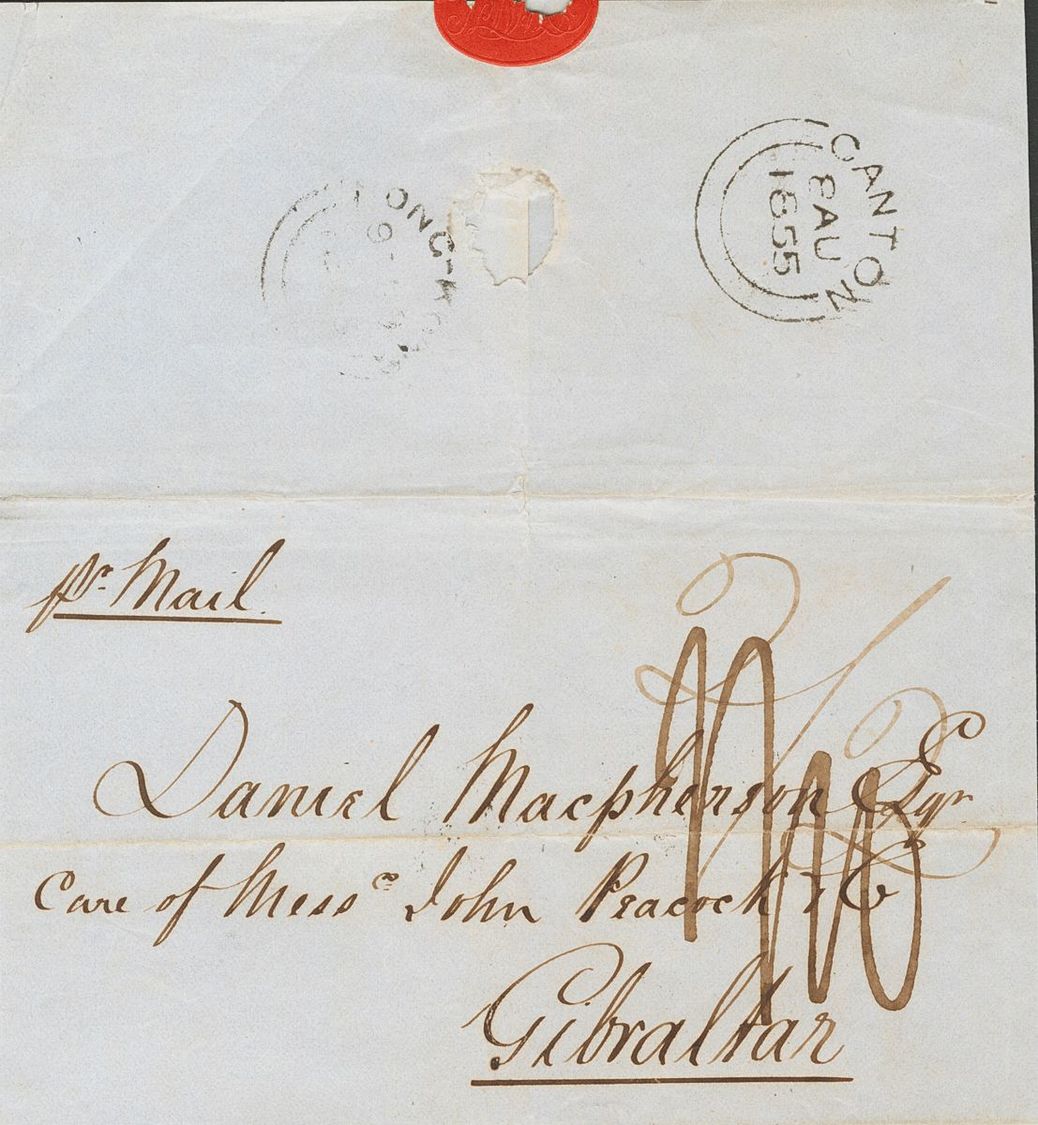 CANTON
8 AU
1855
ONG-K
9
pr Mail
Daniel Macpherson Esqr
Care of Messrs John Peacock & Co
Gibraltar